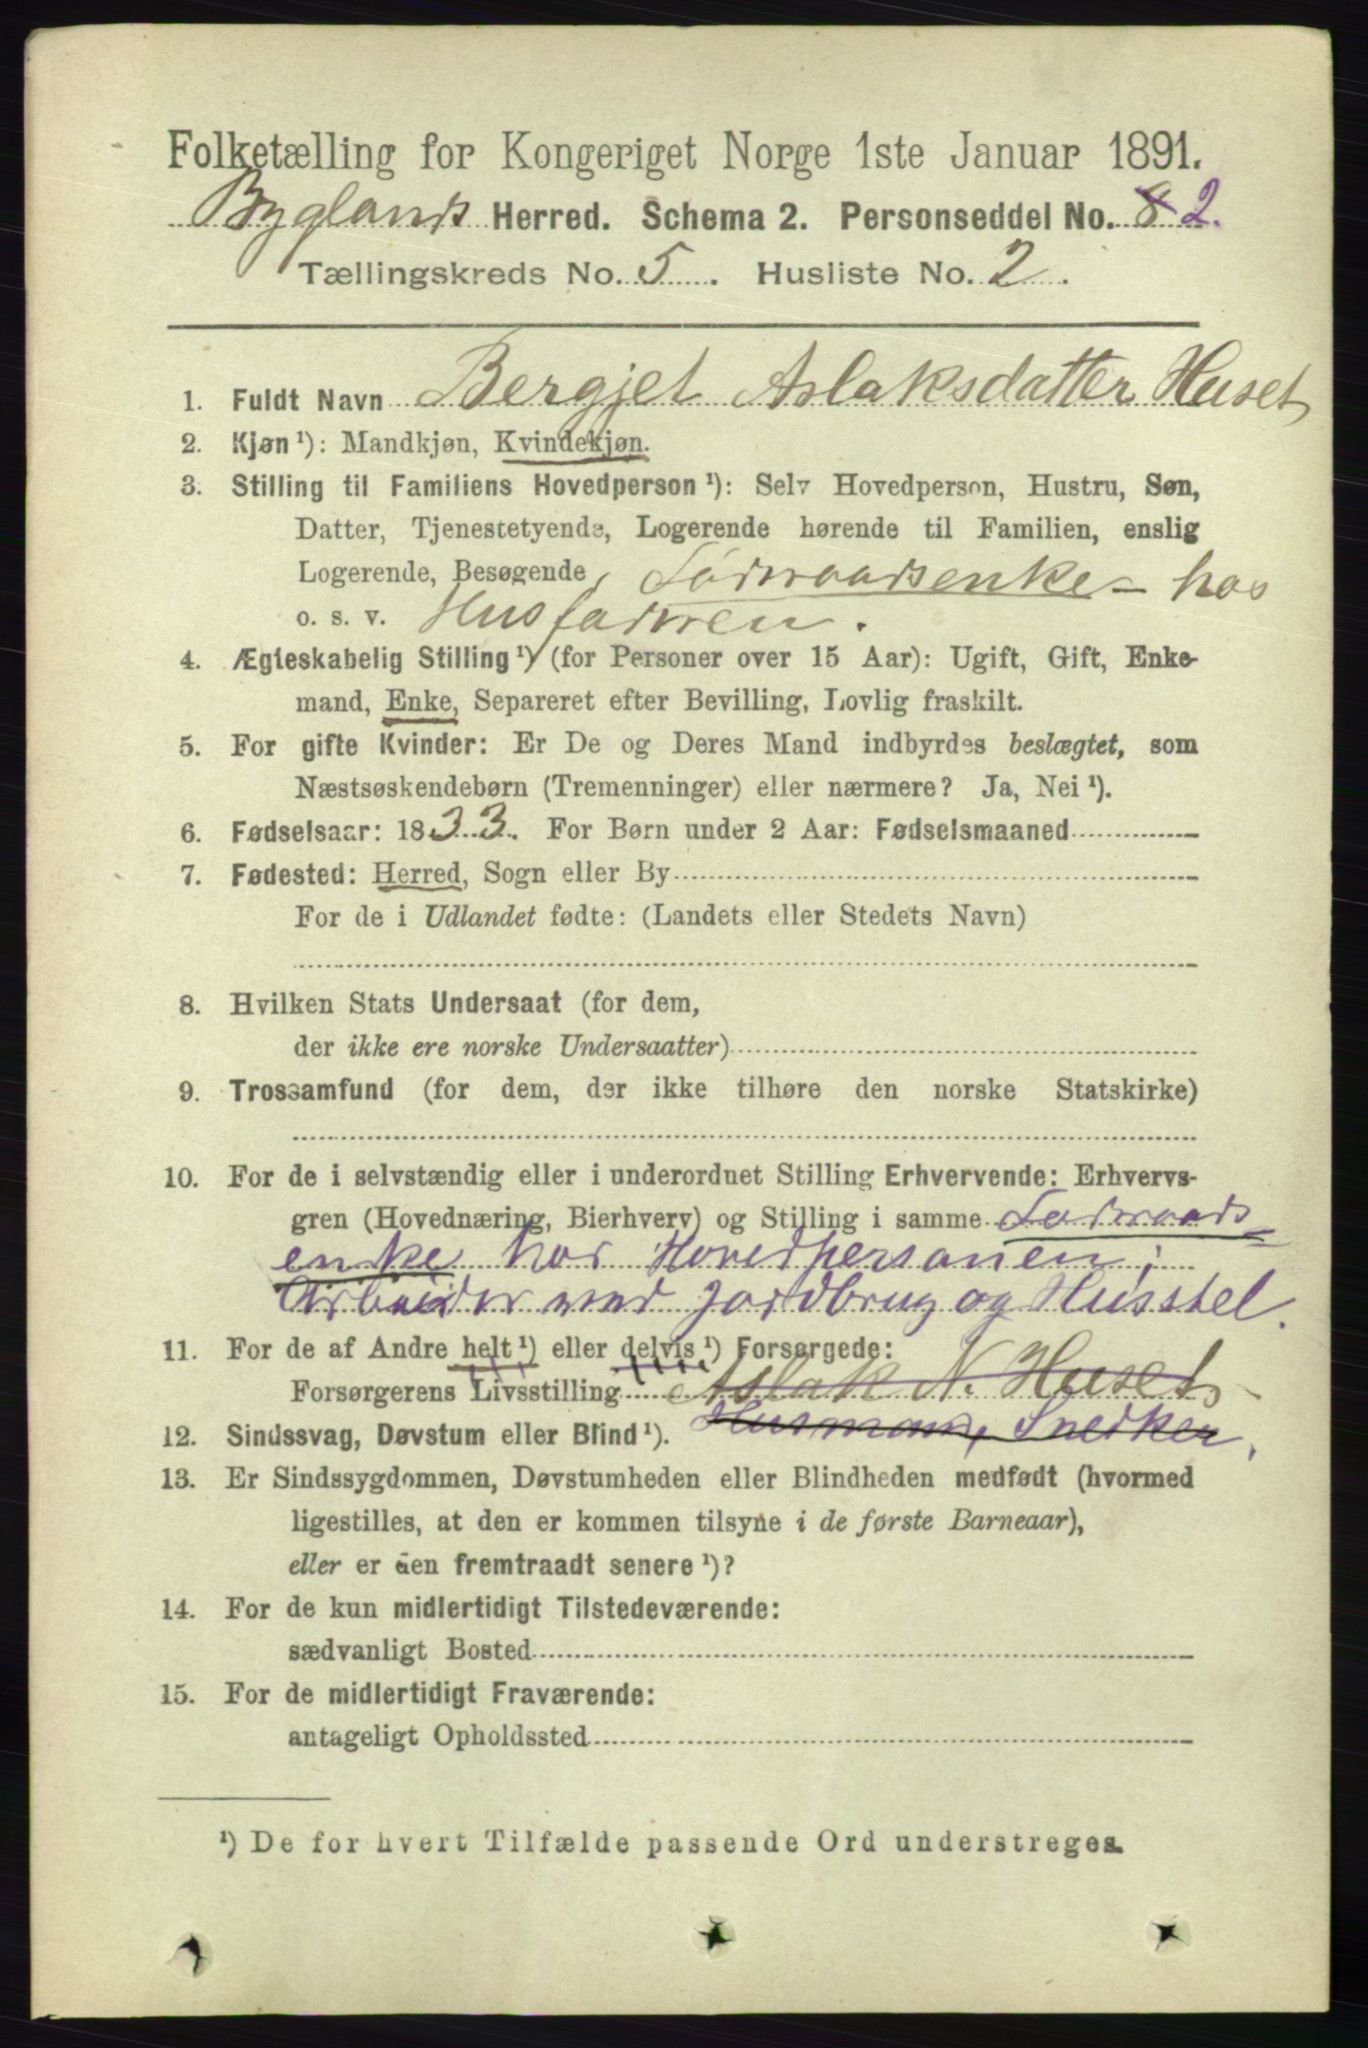 Folketælling for Kongeriget Norge 1ste Januar 1891.
Byglands Herred. Schema 2. Personseddel No. 8 2.
Tællingskreds No. 5. Husliste No. 2.
1. Fuldt Navn Bergjet Aslaksdatter Huset
2. Kjøn ¹): Mandkjøn, Kvindekjøn.
3. Stilling til Familiens Hovedperson ¹): Selv Hovedperson, Hustru, Søn,
Datter, Tjenestetyende, Logerende hørende til Familien, enslig
Logerende, Besøgende, Føderaadsenke - hos
o. s. v. Husfaderen.
4. Ægteskabelig Stilling ¹) (for Personer over 15 Aar): Ugift, Gift, Enke-
mand, Enke, Separeret efter Bevilling, Lovlig fraskilt.
5. For gifte Kvinder: Er De og Deres Mand indbyrdes beslægtet, som
Næstsøskendebørn (Tremenninger) eller nærmere? Ja, Nei ¹).
6. Fødselsaar: 1833. For Børn under 2 Aar: Fødselsmaaned
7. Fødested: Herred, Sogn eller By
For de i Udlandet fødte: (Landets eller Stedets Navn)
8. Hvilken Stats Undersaat (for dem,
der ikke ere norske Undersaatter)
9. Trossamfund (for dem, der ikke tilhøre den norske Statskirke)
10. For de i selvstændig eller i underordnet Stilling Erhvervende: Erhvervs-
gren (Hovednæring, Bierhverv) og Stilling i samme Føderaads
enke hos Hovedpersonen;
Arbeider med Jordbrug og Husstel.
11. For de af Andre helt ¹) eller delvis ¹) Forsørgede:
Forsørgerens Livsstilling Aslak N. Huset,
12. Sindssvag, Døvstum eller Blind ¹). Husmand, Snedker.
13. Er Sindssygdommen, Døvstumheden eller Blindheden medfødt (hvormed
ligestilles, at den er kommen tilsyne i de første Barneaar),
eller er den fremtraadt senere ¹)?
14. For de kun midlertidigt Tilstedeværende:
sædvanligt Bosted
15. For de midlertidigt Fraværende:
antageligt Opholdssted
¹) De for hvert Tilfælde passende Ord understreges.